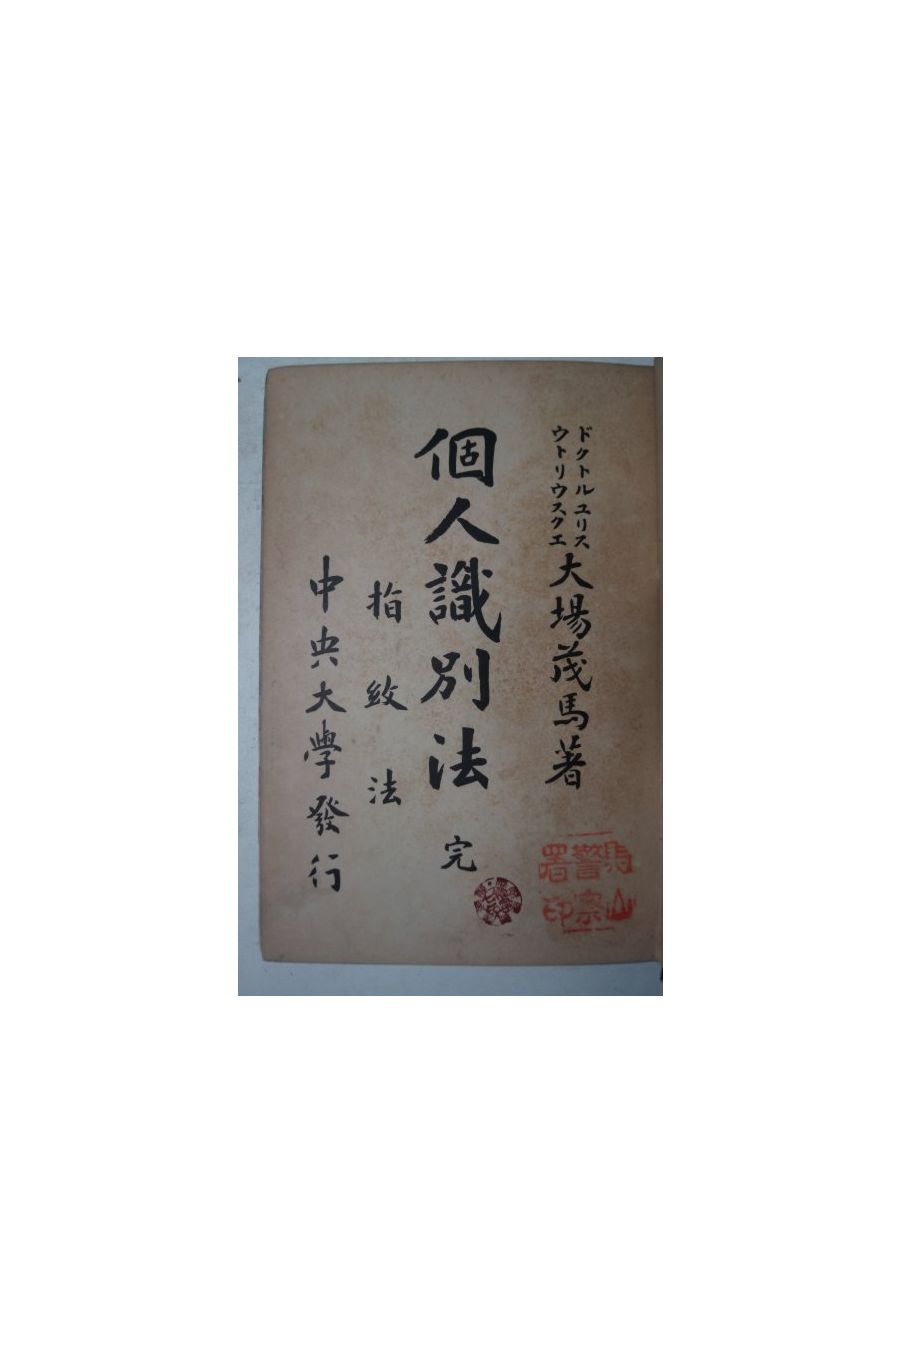 ドクトルユリス
ウトリウスクエ
大場茂馬著
個人識別法 完
指紋法
中央大學發行
馬山
警察
署印